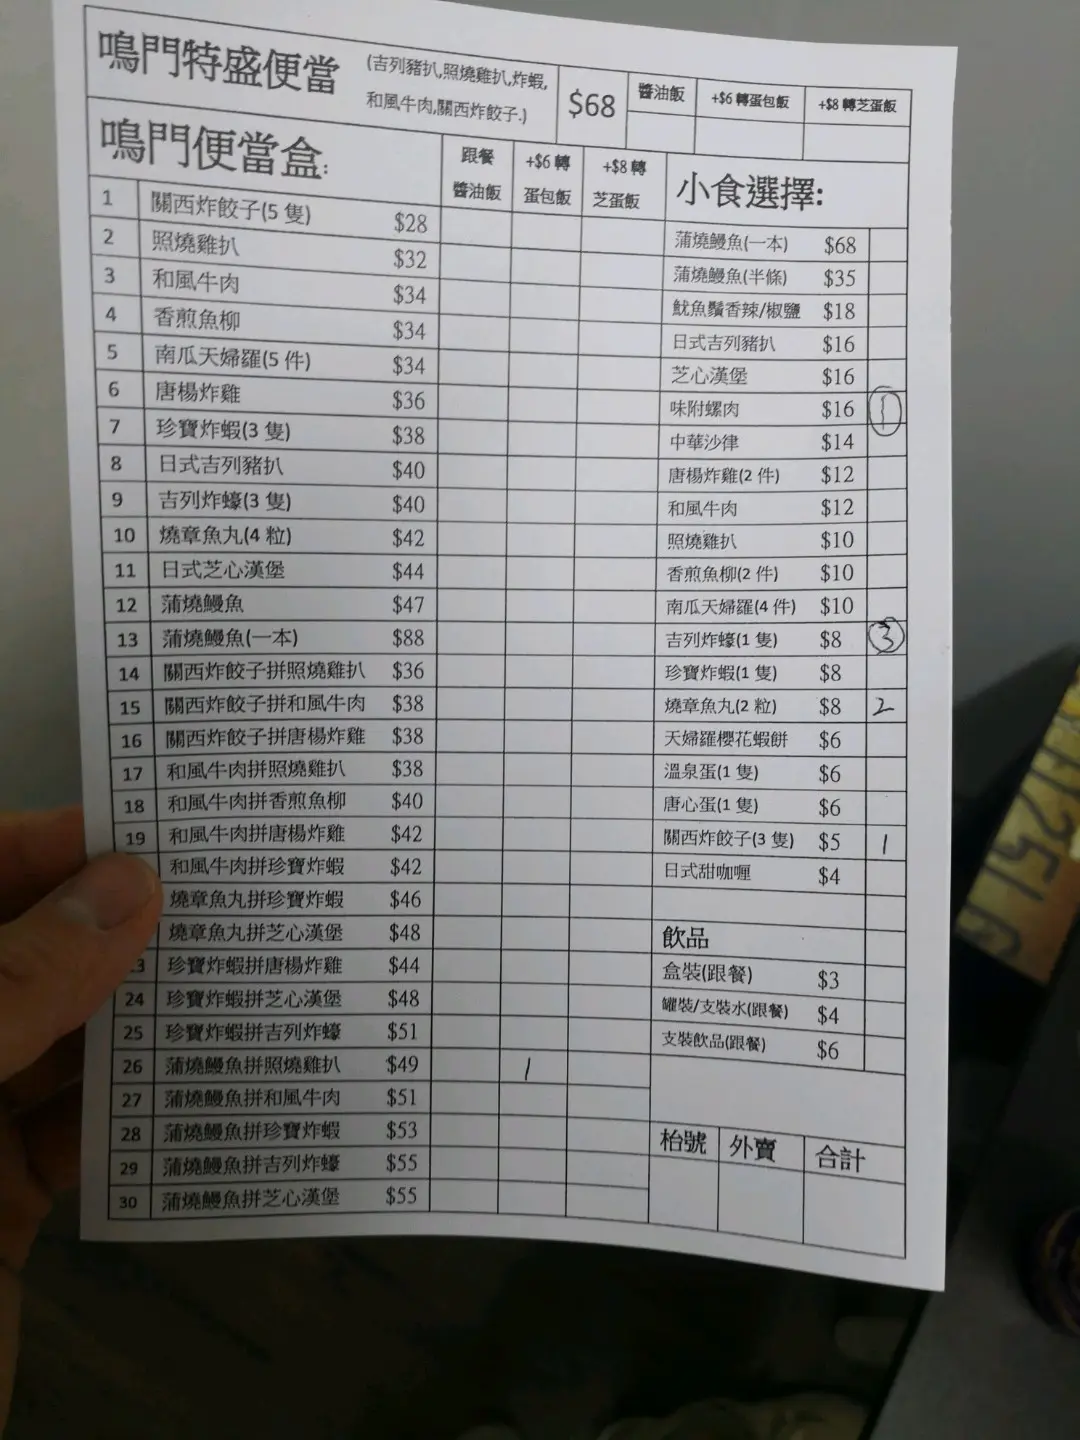 鳴門特盛便當 (吉列豬扒,照燒雞扒,炸蝦, $68 醬油飯 +$6 轉蛋包飯 +$8 轉芝蛋飯
和風牛肉,關西炸餃子.)
鳴門便當盒: 跟餐 +$6 轉 +$8 轉
醬油飯 蛋包飯 芝蛋飯
1 關西炸餃子(5 隻) $28
2 照燒雞扒 $32
3 和風牛肉 $34
4 香煎魚柳 $34
5 南瓜天婦羅(5 件) $34
6 唐楊炸雞 $36
7 珍寶炸蝦(3 隻) $38
8 日式吉列豬扒 $40
9 吉列炸蠔(3 隻) $40
10 燒章魚丸(4 粒) $42
11 日式芝心漢堡 $44
12 蒲燒鰻魚 $47
13 蒲燒鰻魚(一本) $88
14 關西炸餃子拼照燒雞扒 $36
15 關西炸餃子拼和風牛肉 $38
16 關西炸餃子拼唐楊炸雞 $38
17 和風牛肉拼照燒雞扒 $38
18 和風牛肉拼香煎魚柳 $40
19 和風牛肉拼唐楊炸雞 $42
和風牛肉拼珍寶炸蝦 $42
燒章魚丸拼珍寶炸蝦 $46
燒章魚丸拼芝心漢堡 $48
3 珍寶炸蝦拼唐楊炸雞 $44
24 珍寶炸蝦拼芝心漢堡 $48
25 珍寶炸蝦拼吉列炸蠔 $51
26 蒲燒鰻魚拼照燒雞扒 $49 1
27 蒲燒鰻魚拼和風牛肉 $51
28 蒲燒鰻魚拼珍寶炸蝦 $53
29 蒲燒鰻魚拼吉列炸蠔 $55
30 蒲燒鰻魚拼芝心漢堡 $55
小食選擇:
蒲燒鰻魚(一本) $68
蒲燒鰻魚(半條) $35
魷魚鬚香辣/椒鹽 $18
日式吉列豬扒 $16
芝心漢堡 $16
味附螺肉 $16 1
中華沙律 $14
唐楊炸雞(2 件) $12
和風牛肉 $12
照燒雞扒 $10
香煎魚柳(2 件) $10
南瓜天婦羅(4 件) $10
吉列炸蠔(1 隻) $8 3
珍寶炸蝦(1 隻) $8
燒章魚丸(2 粒) $8 2
天婦羅櫻花蝦餅 $6
溫泉蛋(1 隻) $6
唐心蛋(1 隻) $6
關西炸餃子(3 隻) $5 1
日式甜咖喱 $4
飲品
盒裝(跟餐) $3
罐裝/支裝水(跟餐) $4
支裝飲品(跟餐) $6
枱號 外賣 合計